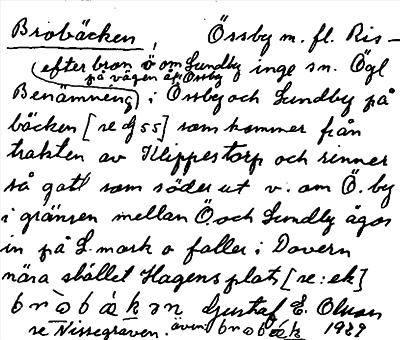 Brobäcken, Össby m. fl. Ris-
(efter bron ö om Lundby inge sn. Ögl
på vägen åt Össby
Benämning) i Össby och Lundby på
bäcken [re dj 55] som kommer från
trakten av Klippestorp och rinner
så gott som söder ut v. om Ö. by
i gränsen mellan Ö. och Lundby ägor
in på L. mark o faller i Dovern
nära stället Hagens plats [re: ek]
Gustaf E. Olson
se Nissegraven. även 1929